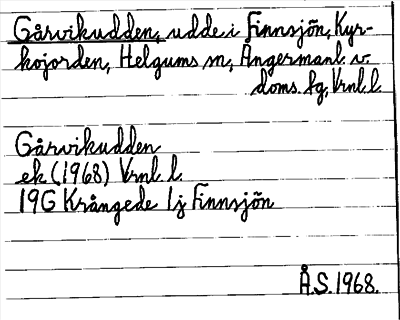 Gårvikudden, udde i Finnsjön, Kyr-
kojorden, Helgums sn, Ångermanl. v.
doms. fg, Vrnl. l.
Gårvikudden
ek (1968) Vrnl. l.
19G Krångede 1j Finnsjön
Å.S. 1968.